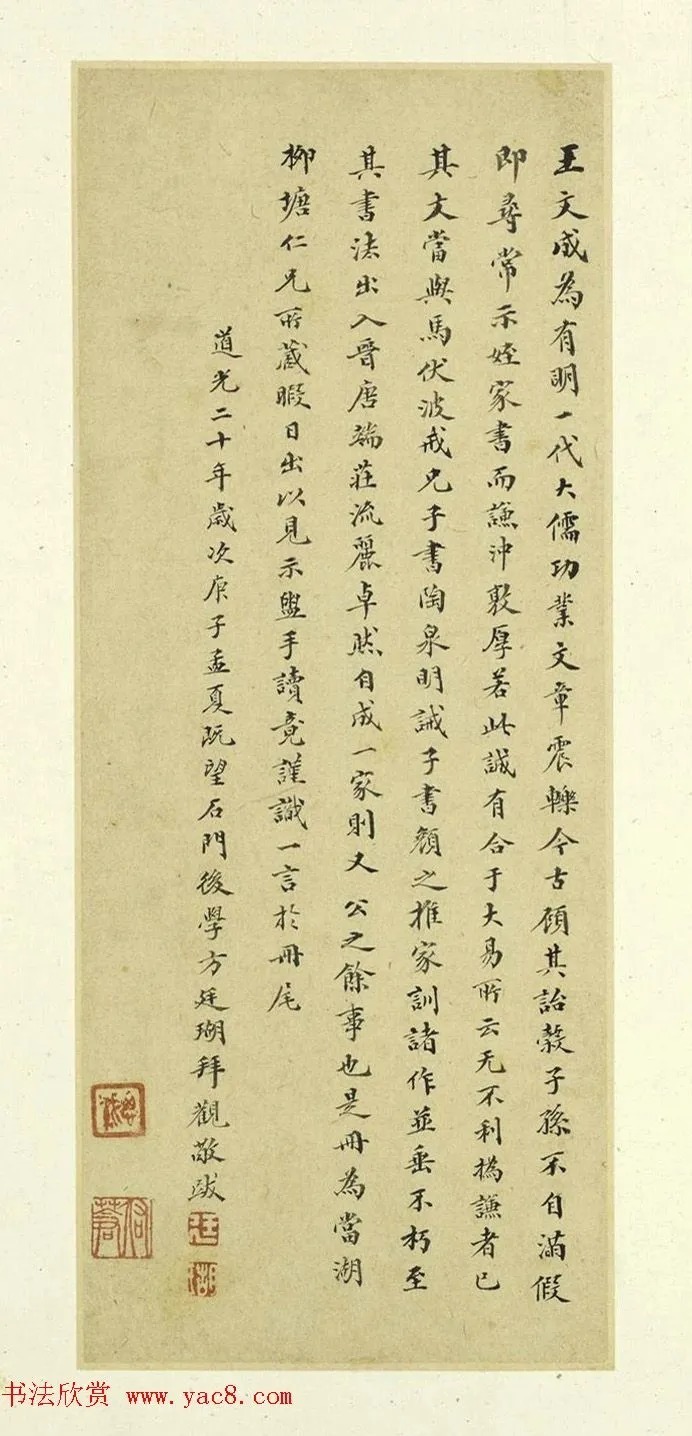 王文成為有明一代大儒功業文章震轢今古顧其詒榖子孫不自滿假
即尋常示姪家書而謙沖敦厚若此誠有合于大易所云无不利撝謙者已
其文當與馬伏波戒兄子書陶泉明誡子書顏之推家訓諸作並垂不朽至
其書法出入晉唐端莊流麗卓然自成一家則又公之餘事也是冊為當湖
柳塘仁兄所藏暇日出以見示盥手讀竟謹識一言於冊尾
道光二十年歲次庚子孟夏既望石門後學方廷瑚拜觀敬跋
书法欣赏 www.yac8.com